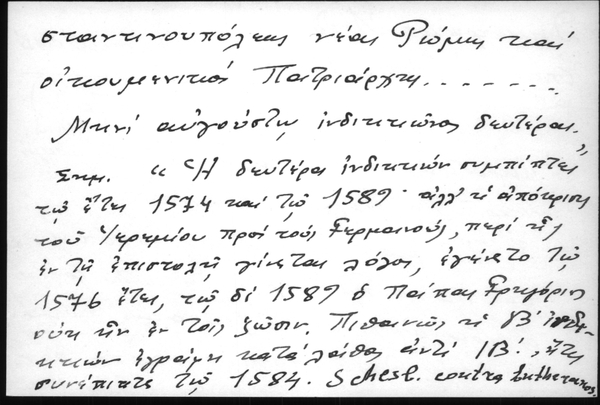 σταντινουπόλεως νέας Ρώμης καὶ
οἰκουμενικὸς Πατριάρχης........
Μηνὶ αὐγούστῳ ἰνδικτιῶνος δευτέρας."
Σημ. « Ἡ δευτέρα ἰνδικτιὼν συμπίπτει
τῷ ἔτει 1574 καὶ τῷ 1589· ἀλλ' ἡ ἀπόκρισις
τοῦ Ἱερεμίου πρὸς τοὺς Γερμανούς, περὶ ἧς
ἐν τῇ ἐπιστολῇ γίνεται λόγος, ἐγένετο τῷ
1576 ἔτει, τῷ δὲ 1589 ὁ Πάπας Γρηγόριος
οὐκ ἦν ἐν τοῖς ζῶσιν. Πιθανῶς ἡ Β' ἰνδι-
κτιὼν ἐγράφη κατὰ λάθος ἀντὶ ΙΒ', ἥτις
συνέπιπτε τῷ 1584. Schesl. contra Lutheranos.